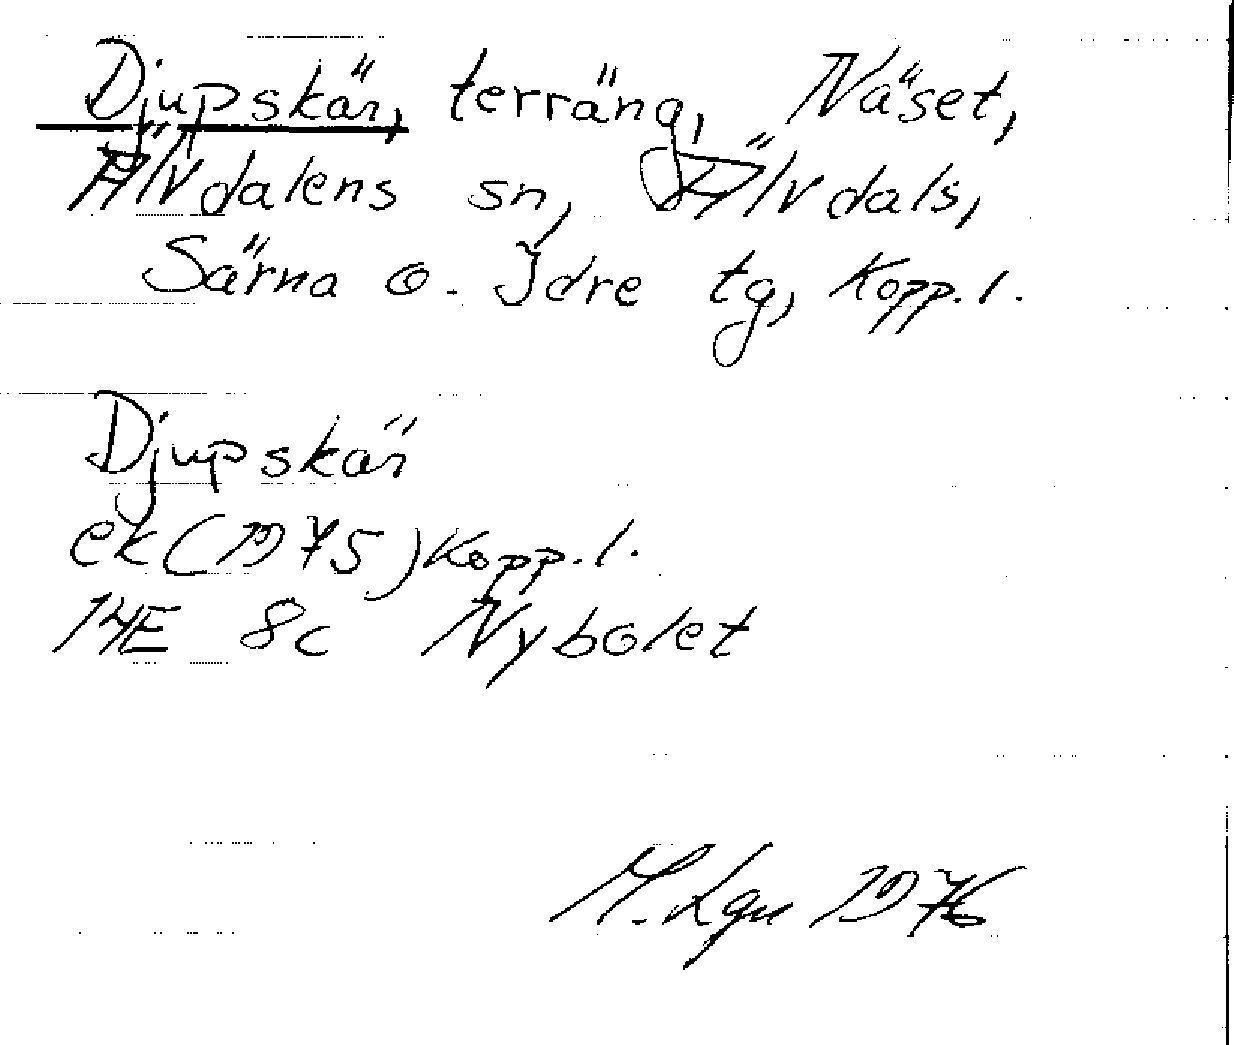 Djupskär, terräng, Näset,
Älvdalens sn, Älvdals,
Särna o. Idre tg, Kopp. l.
Djupskär
ek (1975) Kopp. l.
14E 8c Nybolet
M. Lgn 1976